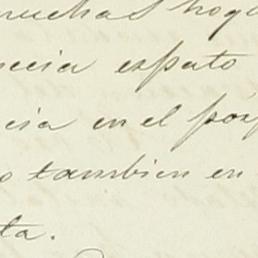 muchas hoga
necia espato
cia en el pór
o tambien en
ta.